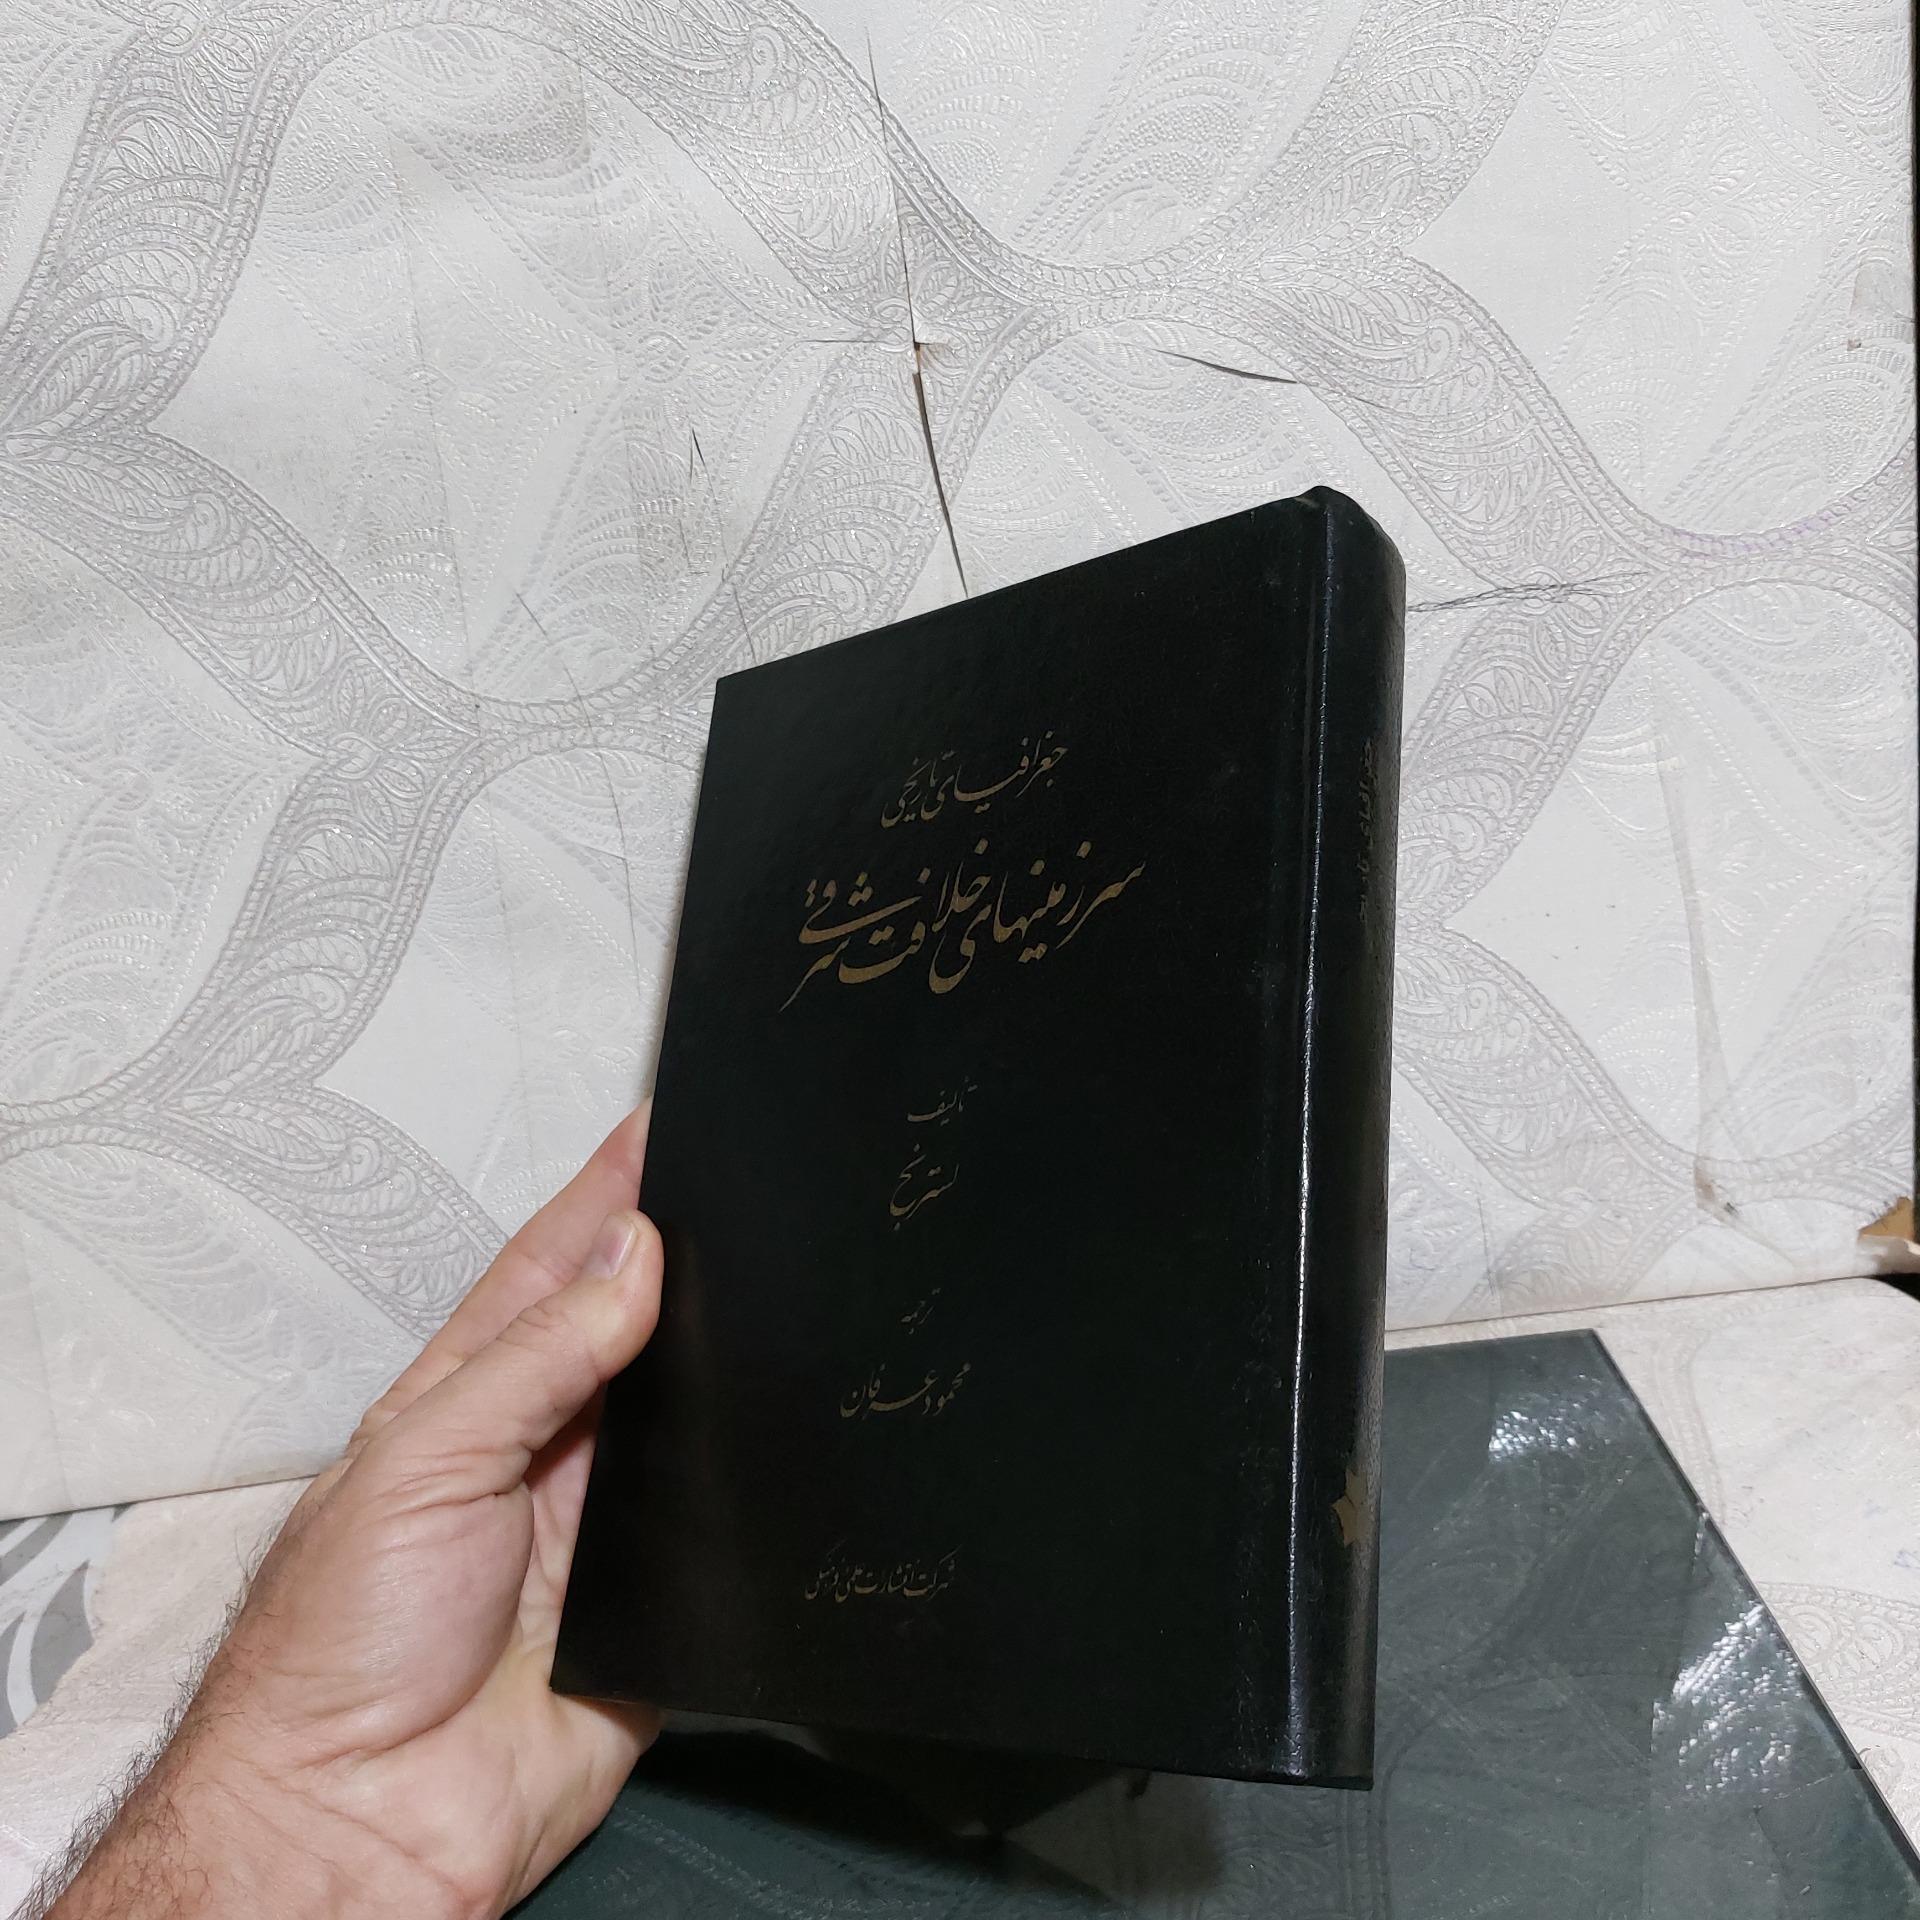 جغرافیای تاریخی
سرزمینهای خلافت شرقی
تألیف
لسترنج
ترجمه
محمود عرفان
شرکت انتشارات علمی و فرهنگی
جغرافیای تاریخی